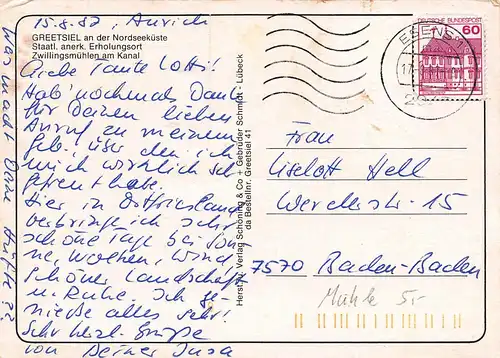 15.8.82, Aurich
GREETSIEL an der Nordseeküste
Staatl. anerk. Erholungsort
Zwillingsmühlen am Kanal
Liebe Tante Lotti!
Hab' nochmals Dank
für Deinen lieben
Anruf zu meinem
Geb., über den ich
mich wirklich sehr
gefreut habe.
Hier in Ostfriesland
verbringe ich sehr
schöne Tage bei Son-
ne, Wolken, Wind,
schöner Landschaft
u. Ruhe. Ich ge-
nieße alles sehr!
Sehr herzl. Grüße
von Deiner
Was macht Deine Hüfte??
Herst. u. Verlag Schöning & Co + Gebrüder Schmidt · Lübeck
da Bestellnr. Greetsiel 41
DEUTSCHE BUNDESPOST
60
ESENS
Frau
Liselott Hell
15
7570 Baden-Baden
Mühle 5,-